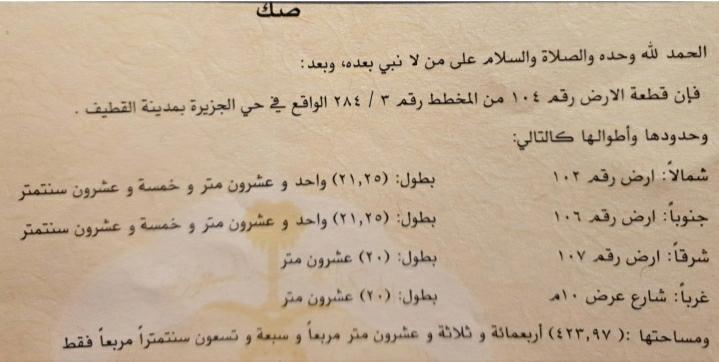 صك
الحمد لله وحده والصلاة والسلام على من لا نبي بعده، وبعد:
فإن قطعة الارض رقم ١٠٤ من المخطط رقم ٣ / ٢٨٤ الواقع في حي الجزيرة بمدينة القطيف .
وحدودها وأطوالها كالتالي:
شمالاً: ارض رقم ١٠٢ بطول: (٢١,٢٥) واحد و عشرون متر و خمسة و عشرون سنتمتر
جنوباً: ارض رقم ١٠٦ بطول: (٢١,٢٥) واحد و عشرون متر و خمسة و عشرون سنتمتر
شرقاً: ارض رقم ١٠٧ بطول: (٢٠) عشرون متر
غرباً: شارع عرض ١٠م بطول: (٢٠) عشرون متر
ومساحتها :( ٤٢٣,٩٧) أربعمائة و ثلاثة و عشرون متر مربعاً و سبعة و تسعون سنتمتراً مربعاً فقط